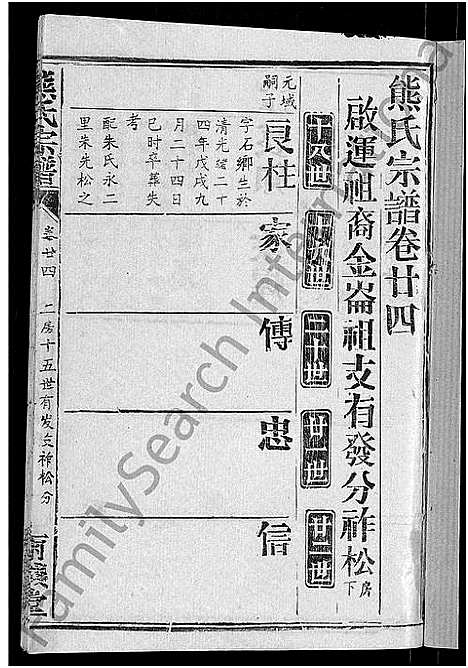 熊氏宗譜卷廿四
啟運祖裔金崙祖支有發分祚松房下
世
世
世
世
世
良柱
家
傳
忠
信
元城
嗣子
字石卿生於
清光緒二十
四年戊戌九
月二十四日
巳時卒葬失
考
配朱氏永二
里朱先松之
熊氏宗譜
卷廿四
二房十五世有发支祚松分
FamilySearch International